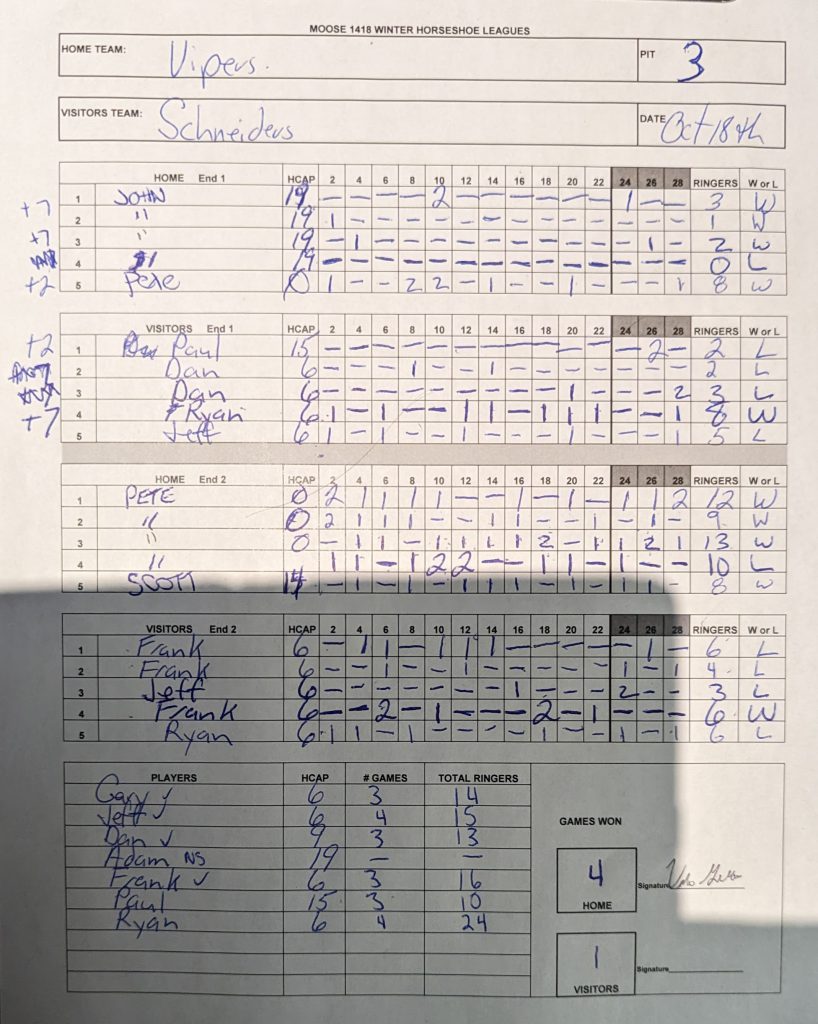 MOOSE 1418 WINTER HORSESHOE LEAGUES
HOME TEAM: Vipers. PIT 3
VISITORS TEAM: Schneiders DATE Oct 18th
HOME End 1 HCAP 2 4 6 8 10 12 14 16 18 20 22 24 26 28 RINGERS W or L
+7 1 JOHN 19 - - - - 2 - - - - - - 1 - - 3 W
2 " 19 1 - - - - - - - - - - - - - 1 W
+7 3 " 19 - 1 - - - - - - - - - - 1 - 2 W
4 19 - - - - - - - - - - - - - - 0 L
+2 5 Pete 0 1 - - 2 2 - 1 - - 1 - - - 1 8 W
VISITORS End 1 HCAP 2 4 6 8 10 12 14 16 18 20 22 24 26 28 RINGERS W or L
+2 1 Paul 15 - - - - - - - - - - - - 2 - 2 L
2 Dan 6 - - - 1 - - 1 - - - - - - - 2 L
3 Dan 6 - - - - - - - - - 1 - - - 2 3 L
+7 4 Ryan 6 1 - 1 - - 1 1 - 1 1 1 - - 1 8 W
5 Jeff 6 1 - 1 - - 1 - - - 1 - - - 1 5 L
HOME End 2 HCAP 2 4 6 8 10 12 14 16 18 20 22 24 26 28 RINGERS W or L
1 PETE 0 2 1 1 1 1 - - 1 - 1 - 1 1 2 12 W
2 " 0 2 1 1 1 - - 1 1 - - 1 - 1 - 9 W
3 " 0 - 1 1 - 1 1 1 1 2 - 1 1 2 1 13 W
4 " 1 1 - 1 2 2 - - 1 1 - 1 - - 10 L
5 SCOTT - 1 - 1 1 - 1 1 - 1 - 1 1 - 8 W
VISITORS End 2 HCAP 2 4 6 8 10 12 14 16 18 20 22 24 26 28 RINGERS W or L
1 Frank 6 - 1 1 - 1 1 1 - - - - - 1 - 6 L
2 Frank 6 - - 1 - - 1 - - - - - 1 - 1 4 L
3 Jeff 6 - - - - - - - 1 - - - 2 - - 3 L
4 Frank 6 - - 2 - 1 - - - 2 - 1 - - - 6 W
5 Ryan 6 1 1 - 1 - - - - 1 - - 1 - 1 6 L
PLAYERS HCAP # GAMES TOTAL RINGERS
Gary ✓ 6 3 14
Jeff ✓ 6 4 15
Dan ✓ 9 3 13
Adam NS 19 - -
Frank ✓ 6 3 16
Paul 15 3 10
Ryan 6 4 24
GAMES WON
4 Signature
HOME
1 Signature
VISITORS